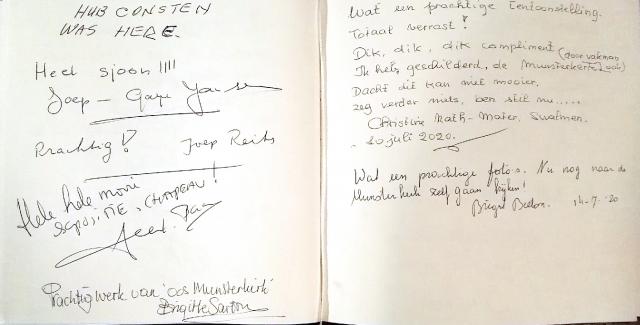 HUB CONSTEN
WAS HERE.
Heel sjoon !!!!
Joep – Gaye Jansen
Prachtig! Joep Reits
Hele hele mooi
expositie, CHAPEAU!
Prachtig werk van 'oos Munsterkirk'
Brigitte Sarton
Wat een prachtige Tentoonstelling.
Totaal verrast!
Dik, dik, dik compliment (door vakman
Ik heb geschilderd, de Munsterkerk ook)
Dacht dit kan niet mooier,
zeg verder niets, ben stil nu.....
Christine Math-Mater, Swalmen.
20 juli 2020.
Wat een prachtige foto's. Nu nog naar de
Munsterkerk zelf gaan kijken!
14-7-'20